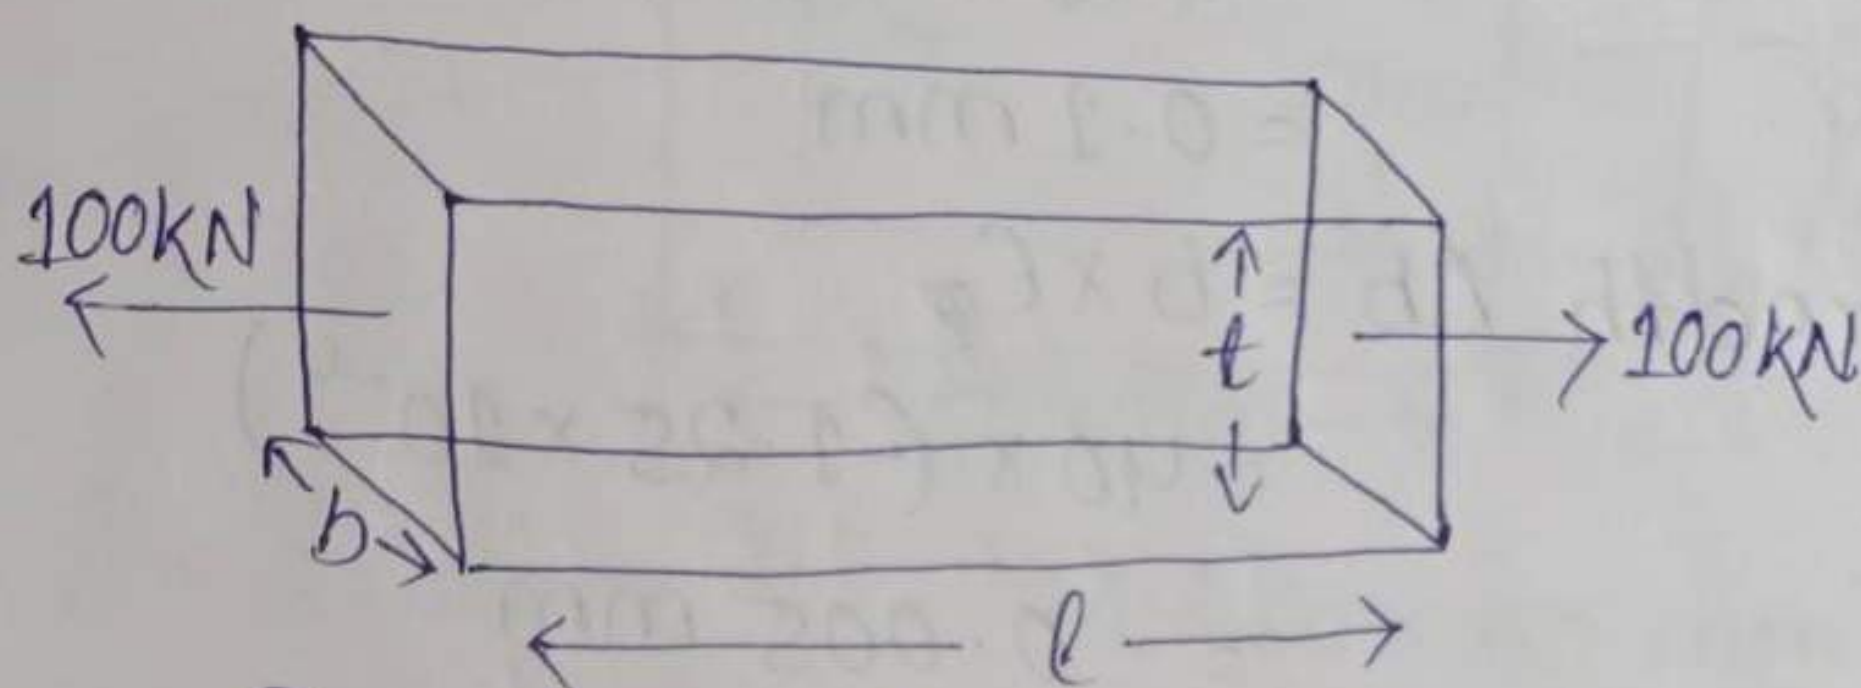 100kN
t
100kN
b
l